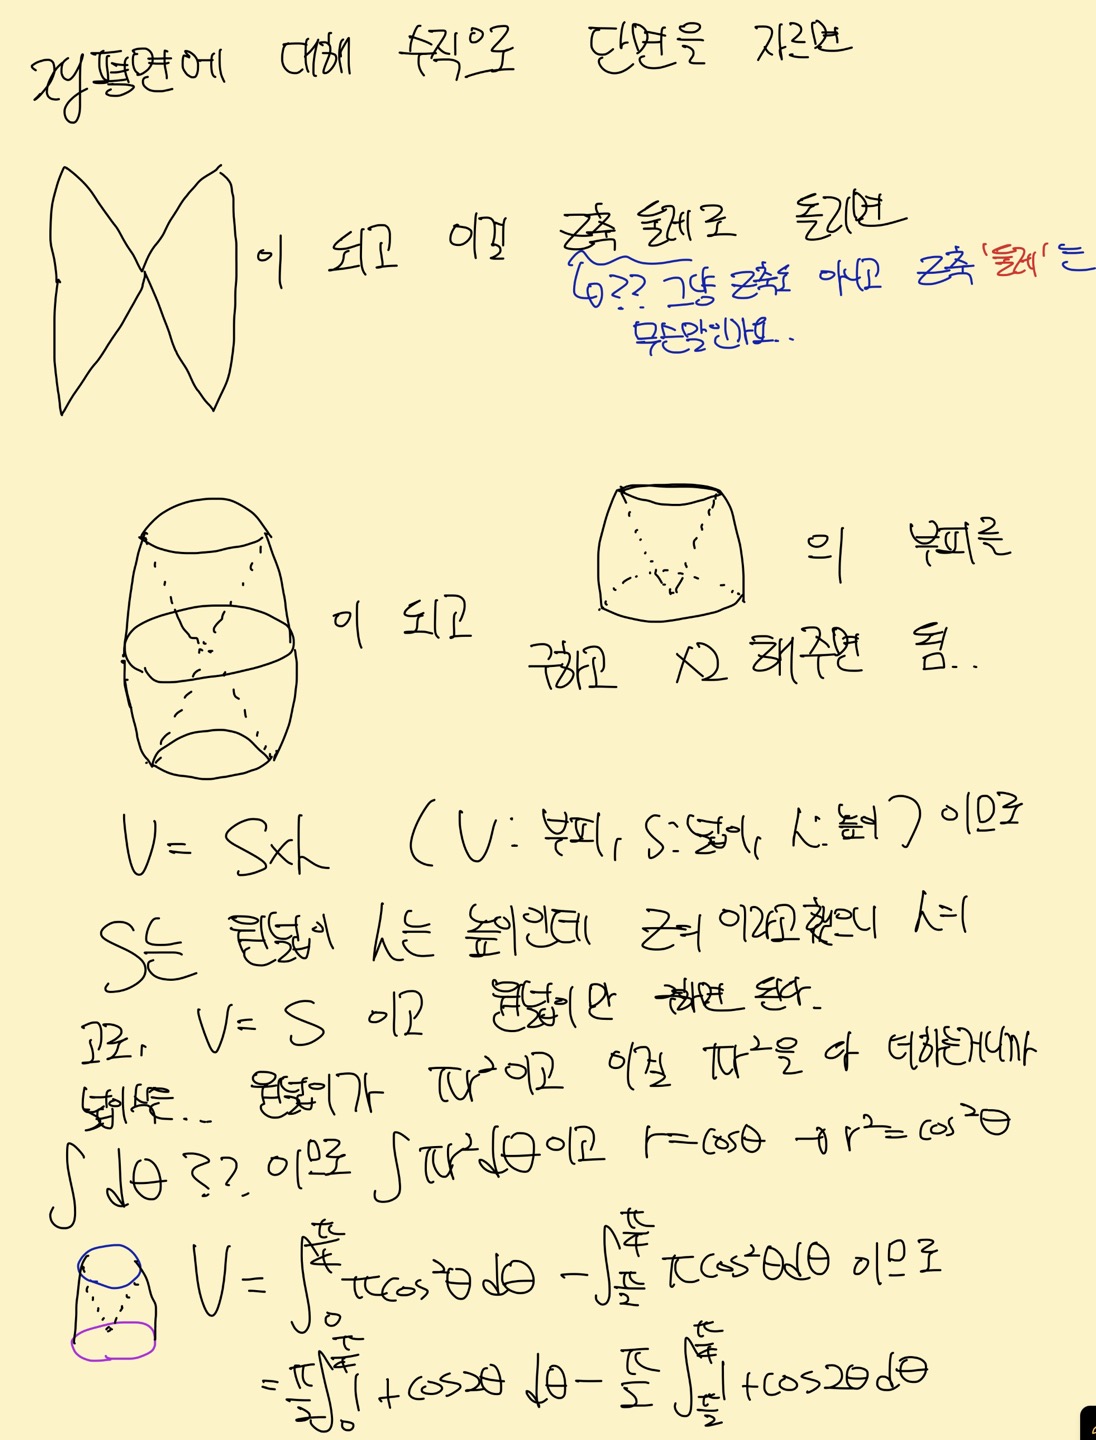 xy평면에 대해 수직으로 단면을 자르면
이 되고 이걸 z축 둘레로 돌리면
↳?? 그냥 z축도 아니고 z축 '둘레'는
무슨말인가요..
이 되고
의 부피를
구하고 ×2 해주면 됨..
V = S×h (V: 부피, S: 넓이, h: 높이) 이므로
S는 원넓이 h는 높이인데 z=1 이라고 했으니 h=1
고로, V = S 이고 원넓이만 구하면 된다.
넓이식은... 원넓이가 πr²이고 이걸 πr²을 다 더하는거니까
∫ dθ ?? 이므로 ∫πr²dθ이고 r=cosθ → r²=cos²θ
V = ∫₀^{π/4} πcos²θ dθ - ∫_{π/2}^{π/4} πcos²θdθ 이므로
= π/2 ∫₀^{π/4} 1+cos2θ dθ - π/2 ∫_{π/2}^{π/4} 1+cos2θdθ